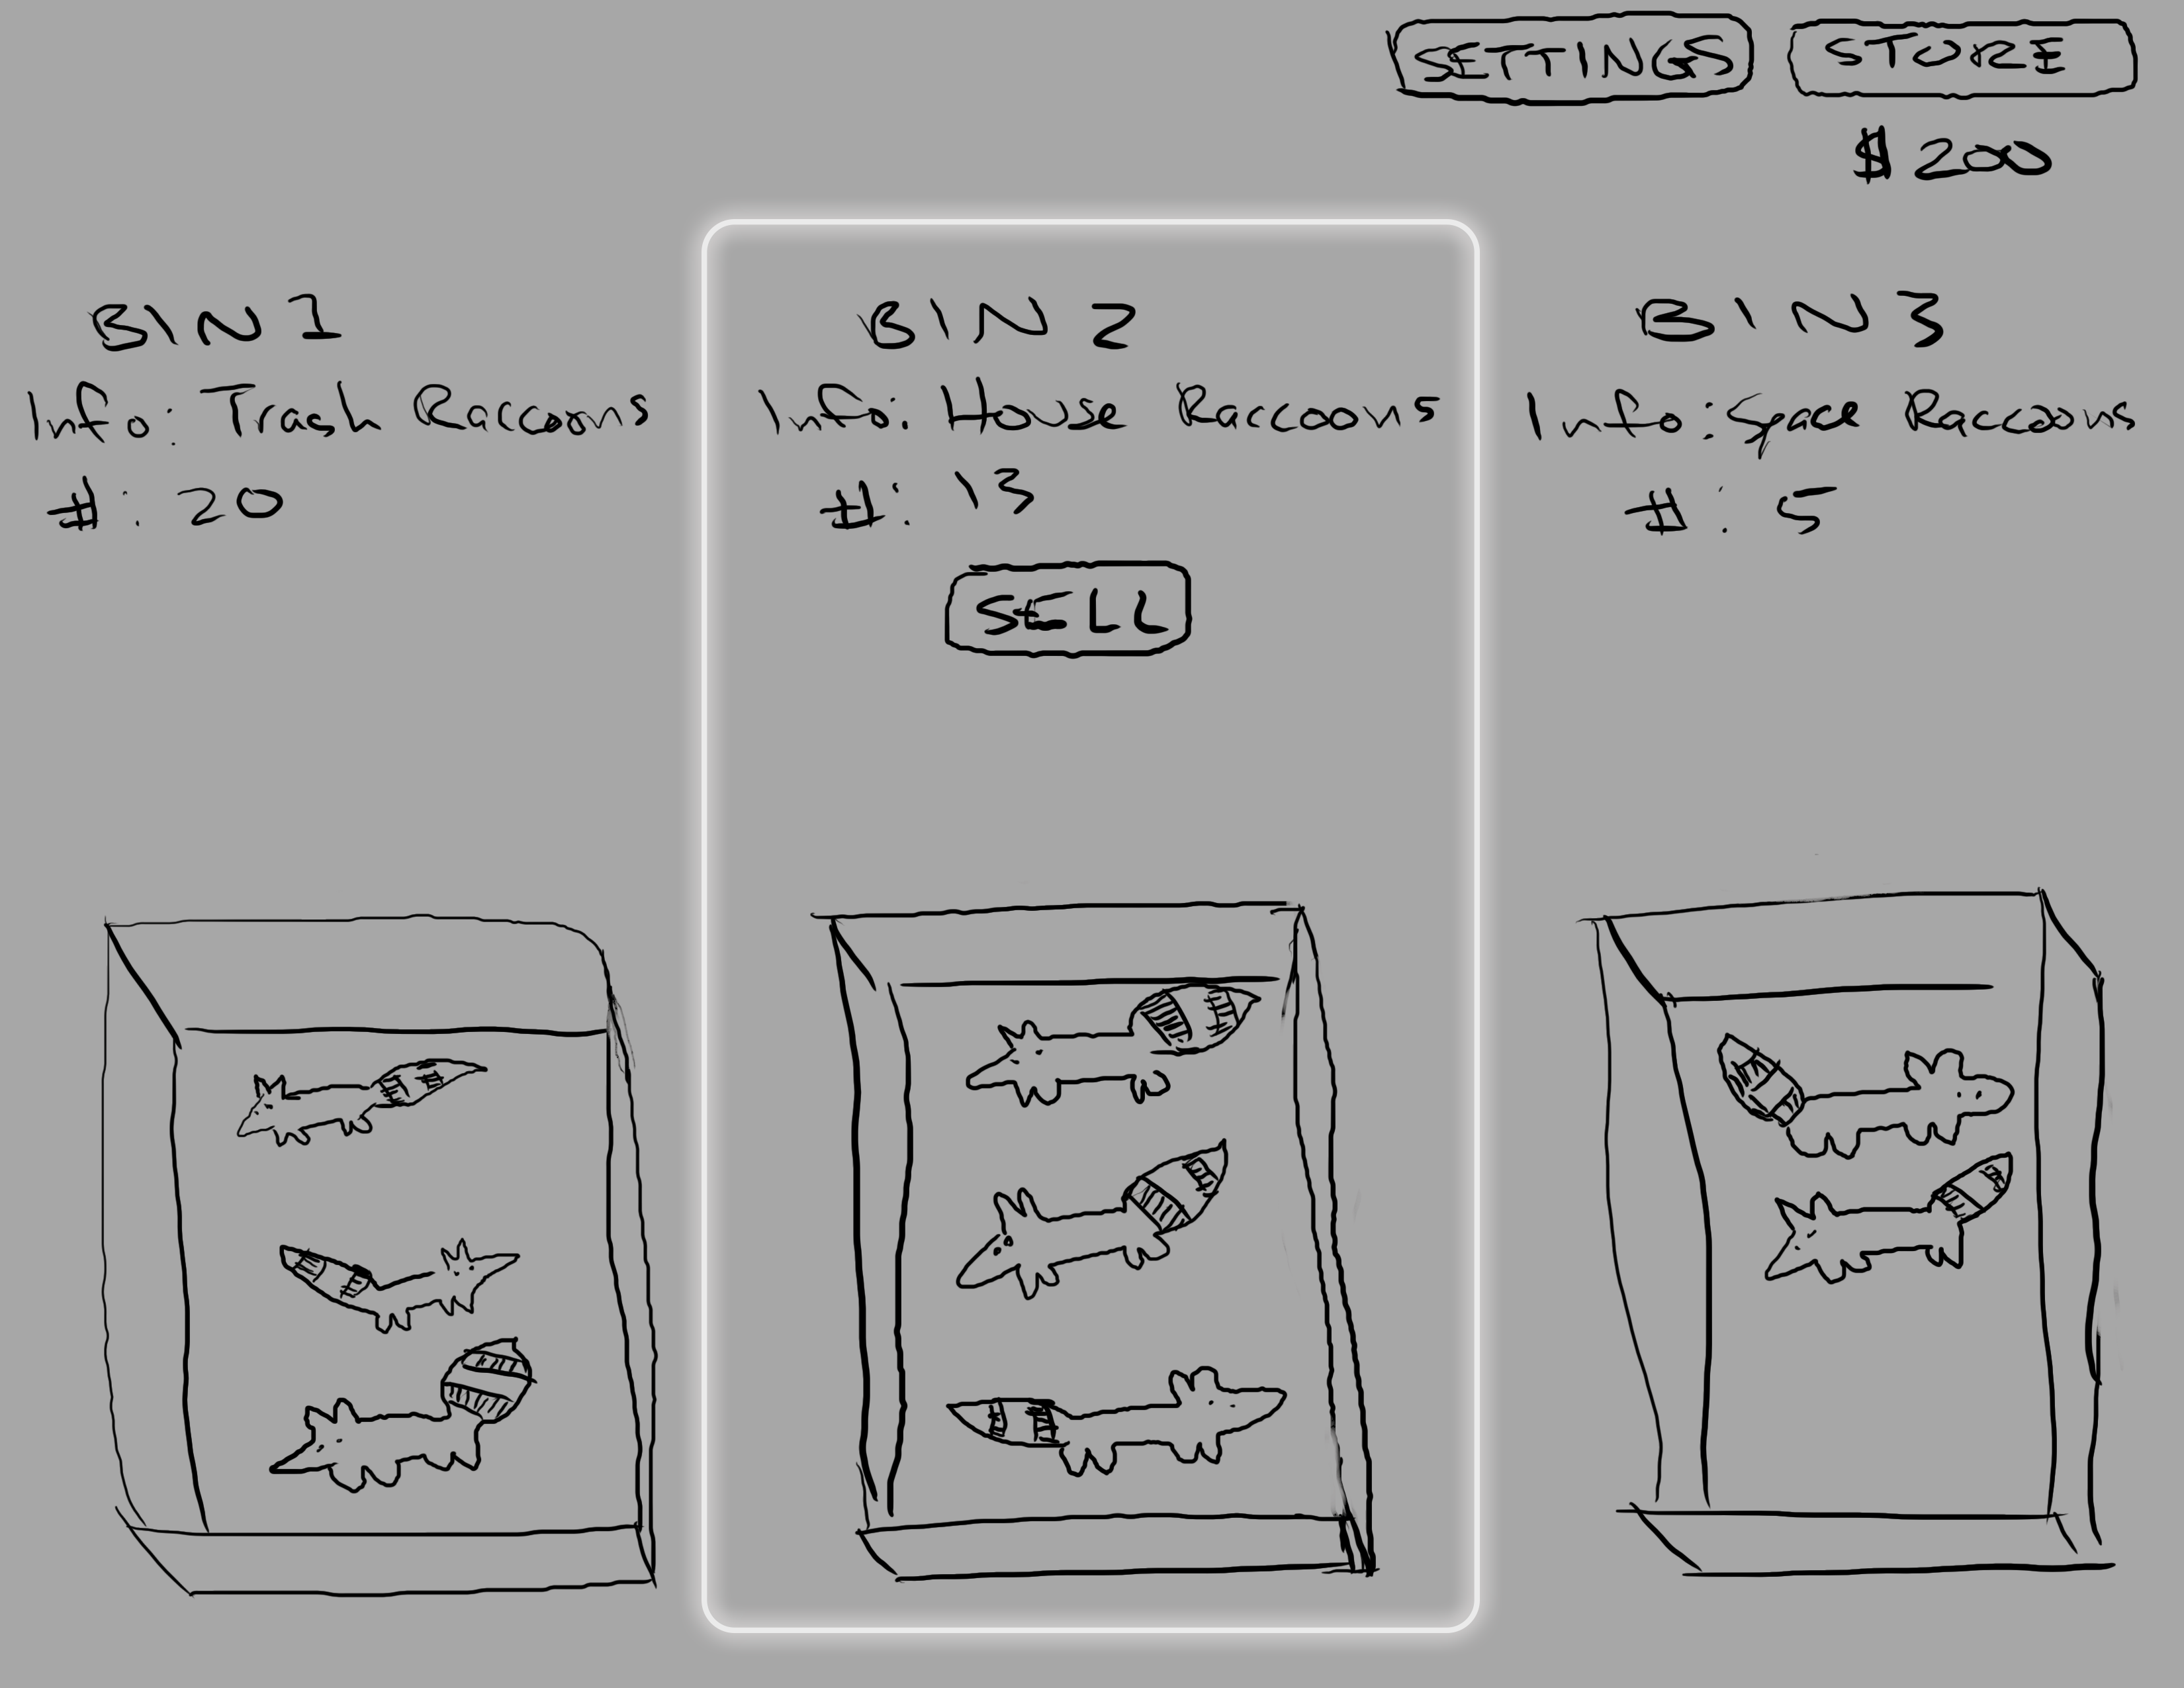 SETTINGS
STORE
$200
BIN 1
Info: Trash Raccoons
#: 20
BIN 2
Info: House Raccoons
#: 13
SELL
BIN 3
Info: Space Raccoons
#: 5